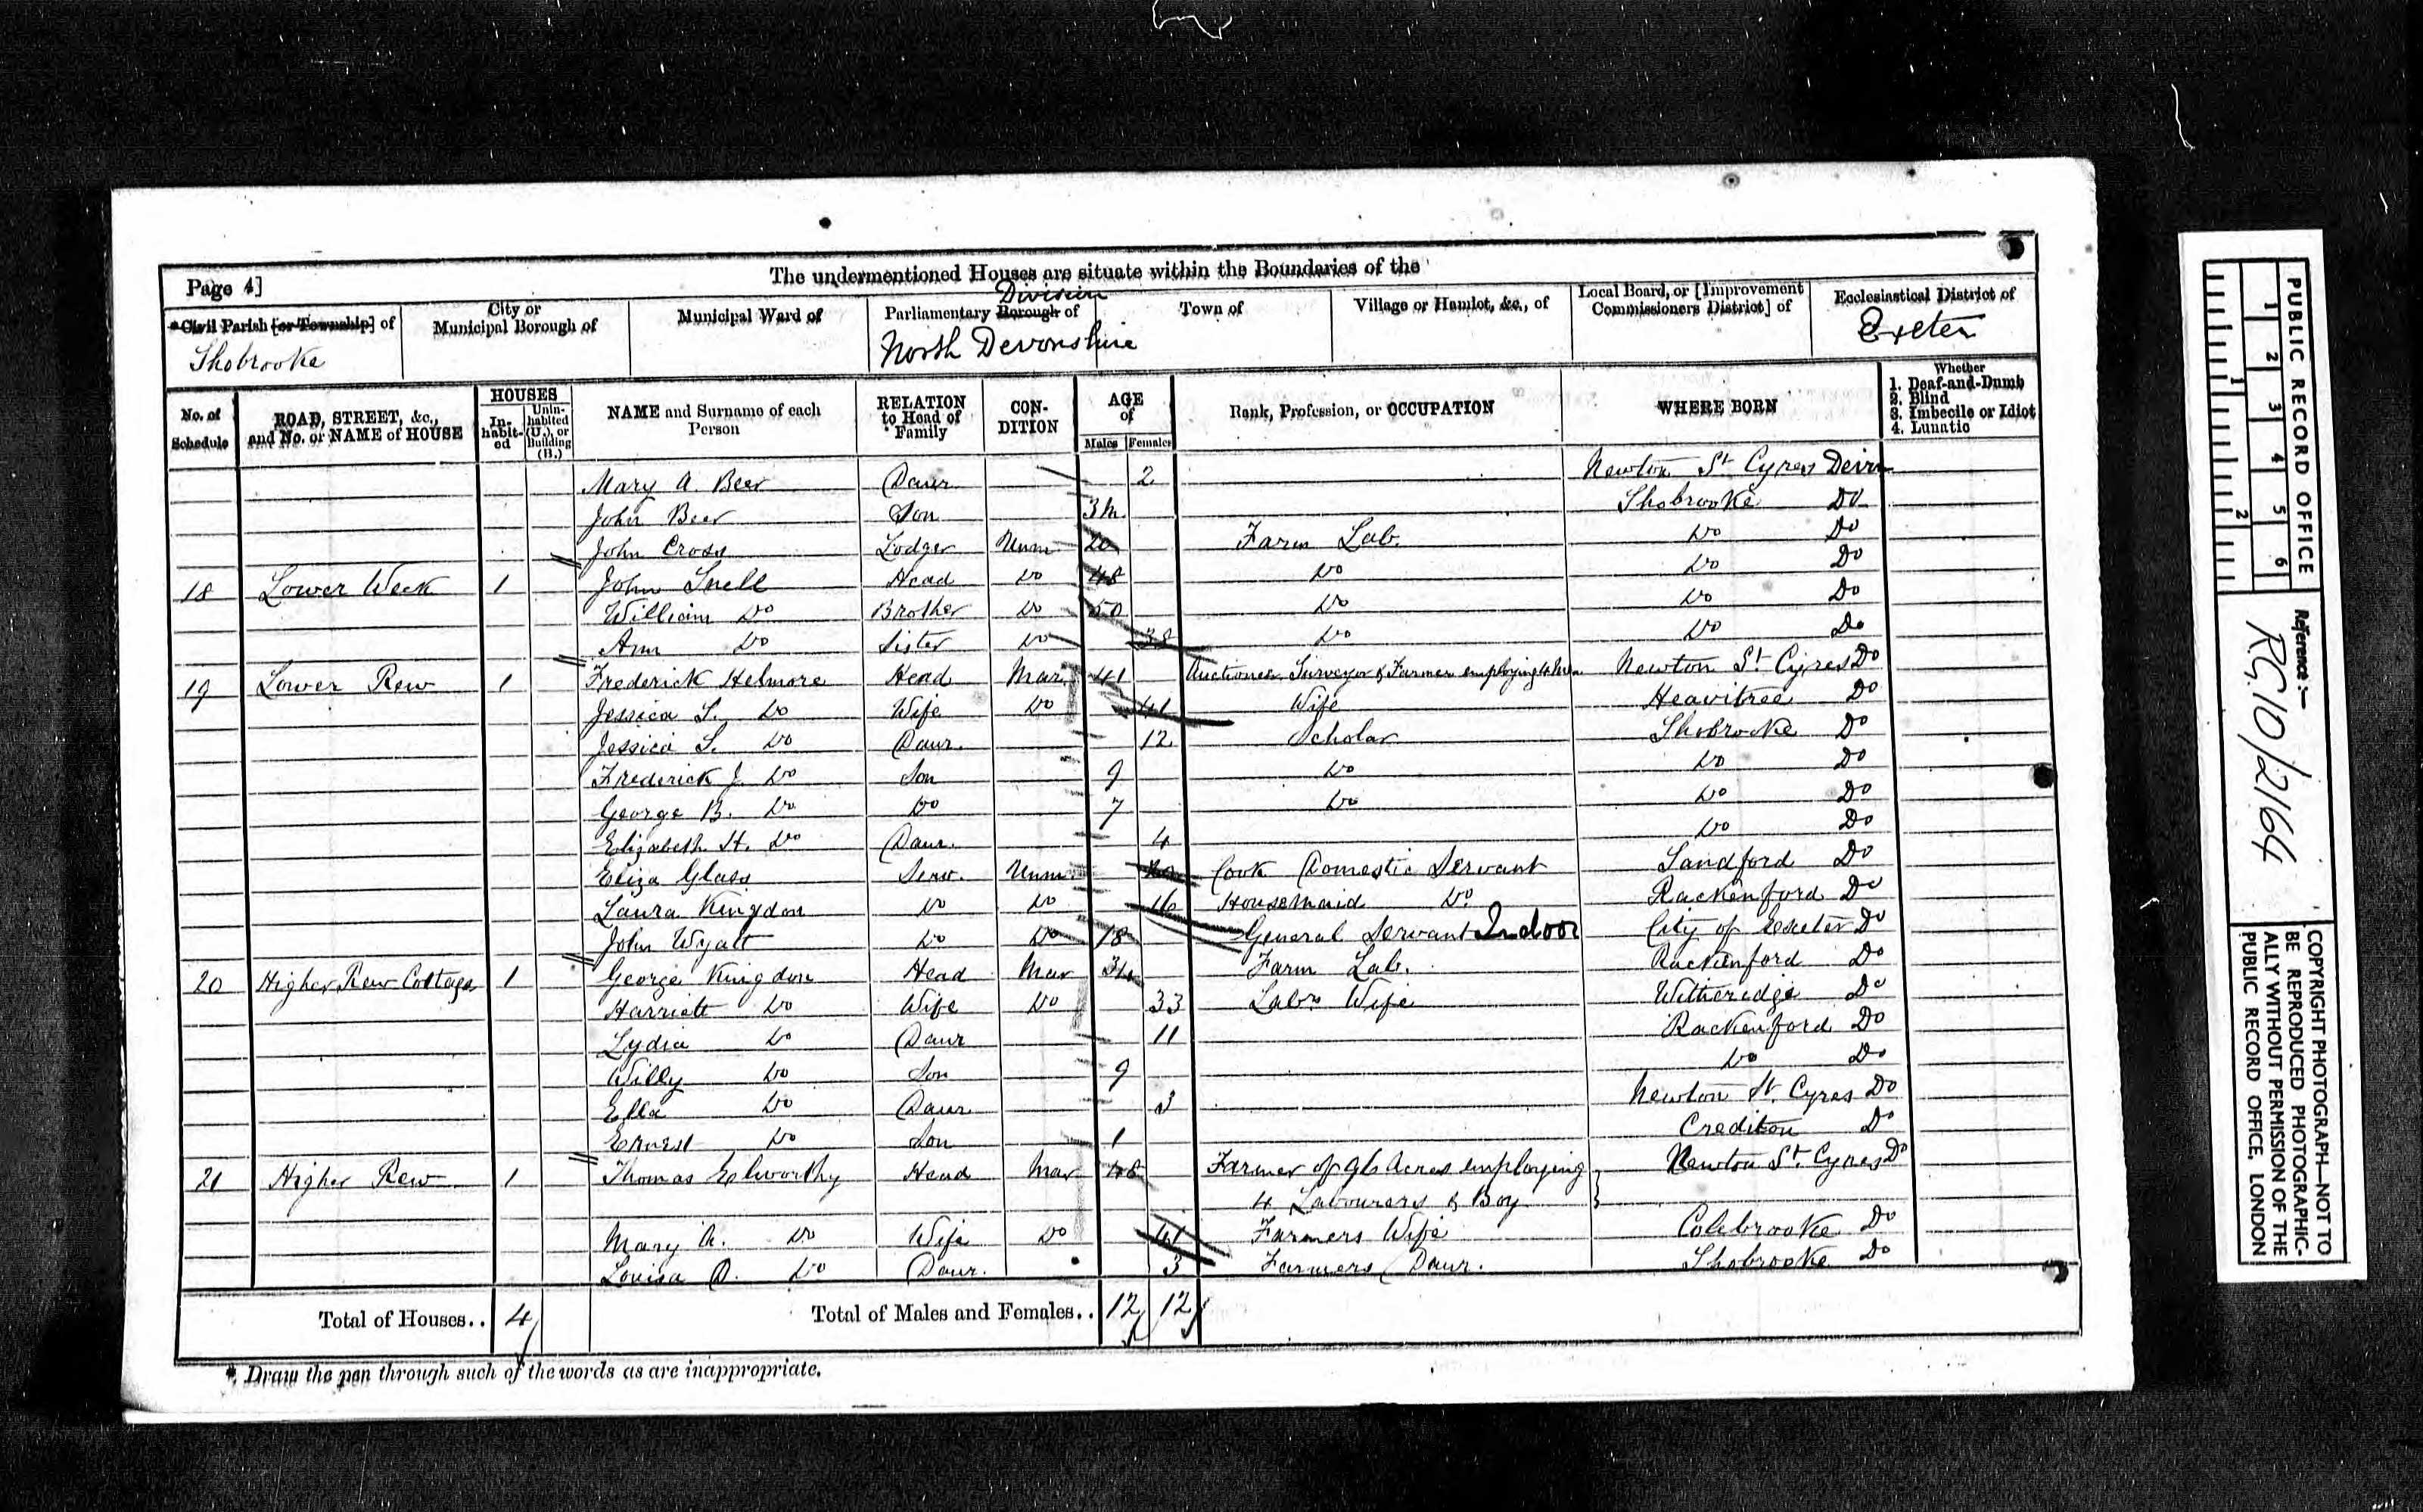 The undermentioned Houses are situate within the Boundaries of the
Page 4]
Civil Parish [or Township] of
Shobrooke
City or Municipal Borough of
Municipal Ward of
Parliamentary Borough of
Division
North Devonshire
Town of
Village or Hamlet, &c., of
Local Board, or [Improvement Commissioners District] of
Ecclesiastical District of
Exeter
No. of Schedule
ROAD, STREET, &c., and No. or NAME of HOUSE
HOUSES
In-habit-ed
Unin-habited (U.), or Building (B.)
NAME and Surname of each Person
RELATION to Head of Family
CON-DITION
AGE of
Males Females
Rank, Profession, or OCCUPATION
WHERE BORN
Whether
1. Deaf-and-Dumb
2. Blind
3. Imbecile or Idiot
4. Lunatic
Mary A. Beer Daur 2 Newton St Cyres Devn
John Beer Son 3m Shobrooke Do
John Cross Lodger Unm 20 Farm Lab. Do Do
18 Lower Week 1 John Snell Head Do 48 Do Do Do
William Do Brother Do 50 Do Do Do
Ann Do Sister Do 38 Do Do Do
19 Lower Rew 1 Frederick Helmore Head Mar. 41 Auctioneer Surveyor & Farmer employing Men Newton St Cyres Do
Jessica S. Do Wife Do 41 Wife Heavitree Do
Jessica S. Do Daur. 12 Scholar Shobrooke Do
Frederick J. Do Son 9 Do Do Do
George B. Do Do 7 Do Do Do
Elizabeth H. Do Daur. 4 Do Do
Eliza Glass Serv. Unm. Cook Domestic Servant Sandford Do
Laura Kingdon Do Do 16 Housemaid Do Rackenford Do
John Wyatt Do Do 18 General Servant Indoor City of Exeter Do
20 Higher Rew Cottage 1 George Kingdon Head Mar 34 Farm Lab. Rackenford Do
Harriett Do Wife Do 33 Labrs Wife Witheredge Do
Lydia Do Daur 11 Rackenford Do
Willy Do Son 9 Do Do
Ella Do Daur 3 Newton St. Cyres Do
Ernest Do Son 1 Crediton Do
21 Higher Rew 1 Thomas Elworthy Head Mar 48 Farmer of 96 Acres employing Newton St. Cyres Do
4 Labourers & Boy
Mary A. Do Wife Do 41 Farmers Wife Colebrooke Do
Louisa D. Do Daur. 3 Farmers Daur. Shobrooke Do
Total of Houses.. 4 Total of Males and Females.. 12 12
* Draw the pen through such of the words as are inappropriate.
PUBLIC RECORD OFFICE
1 2 3 4 5 6
1 2
Reference:-
RG.10/2164
COPYRIGHT PHOTOGRAPH—NOT TO
BE REPRODUCED PHOTOGRAPHIC-
ALLY WITHOUT PERMISSION OF THE
PUBLIC RECORD OFFICE, LONDON